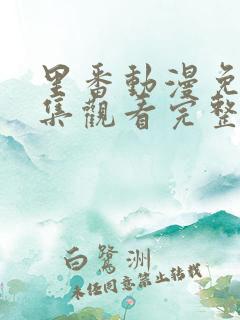 里番動漫免
集觀看完整
白鷺洲
未经同意禁止转载